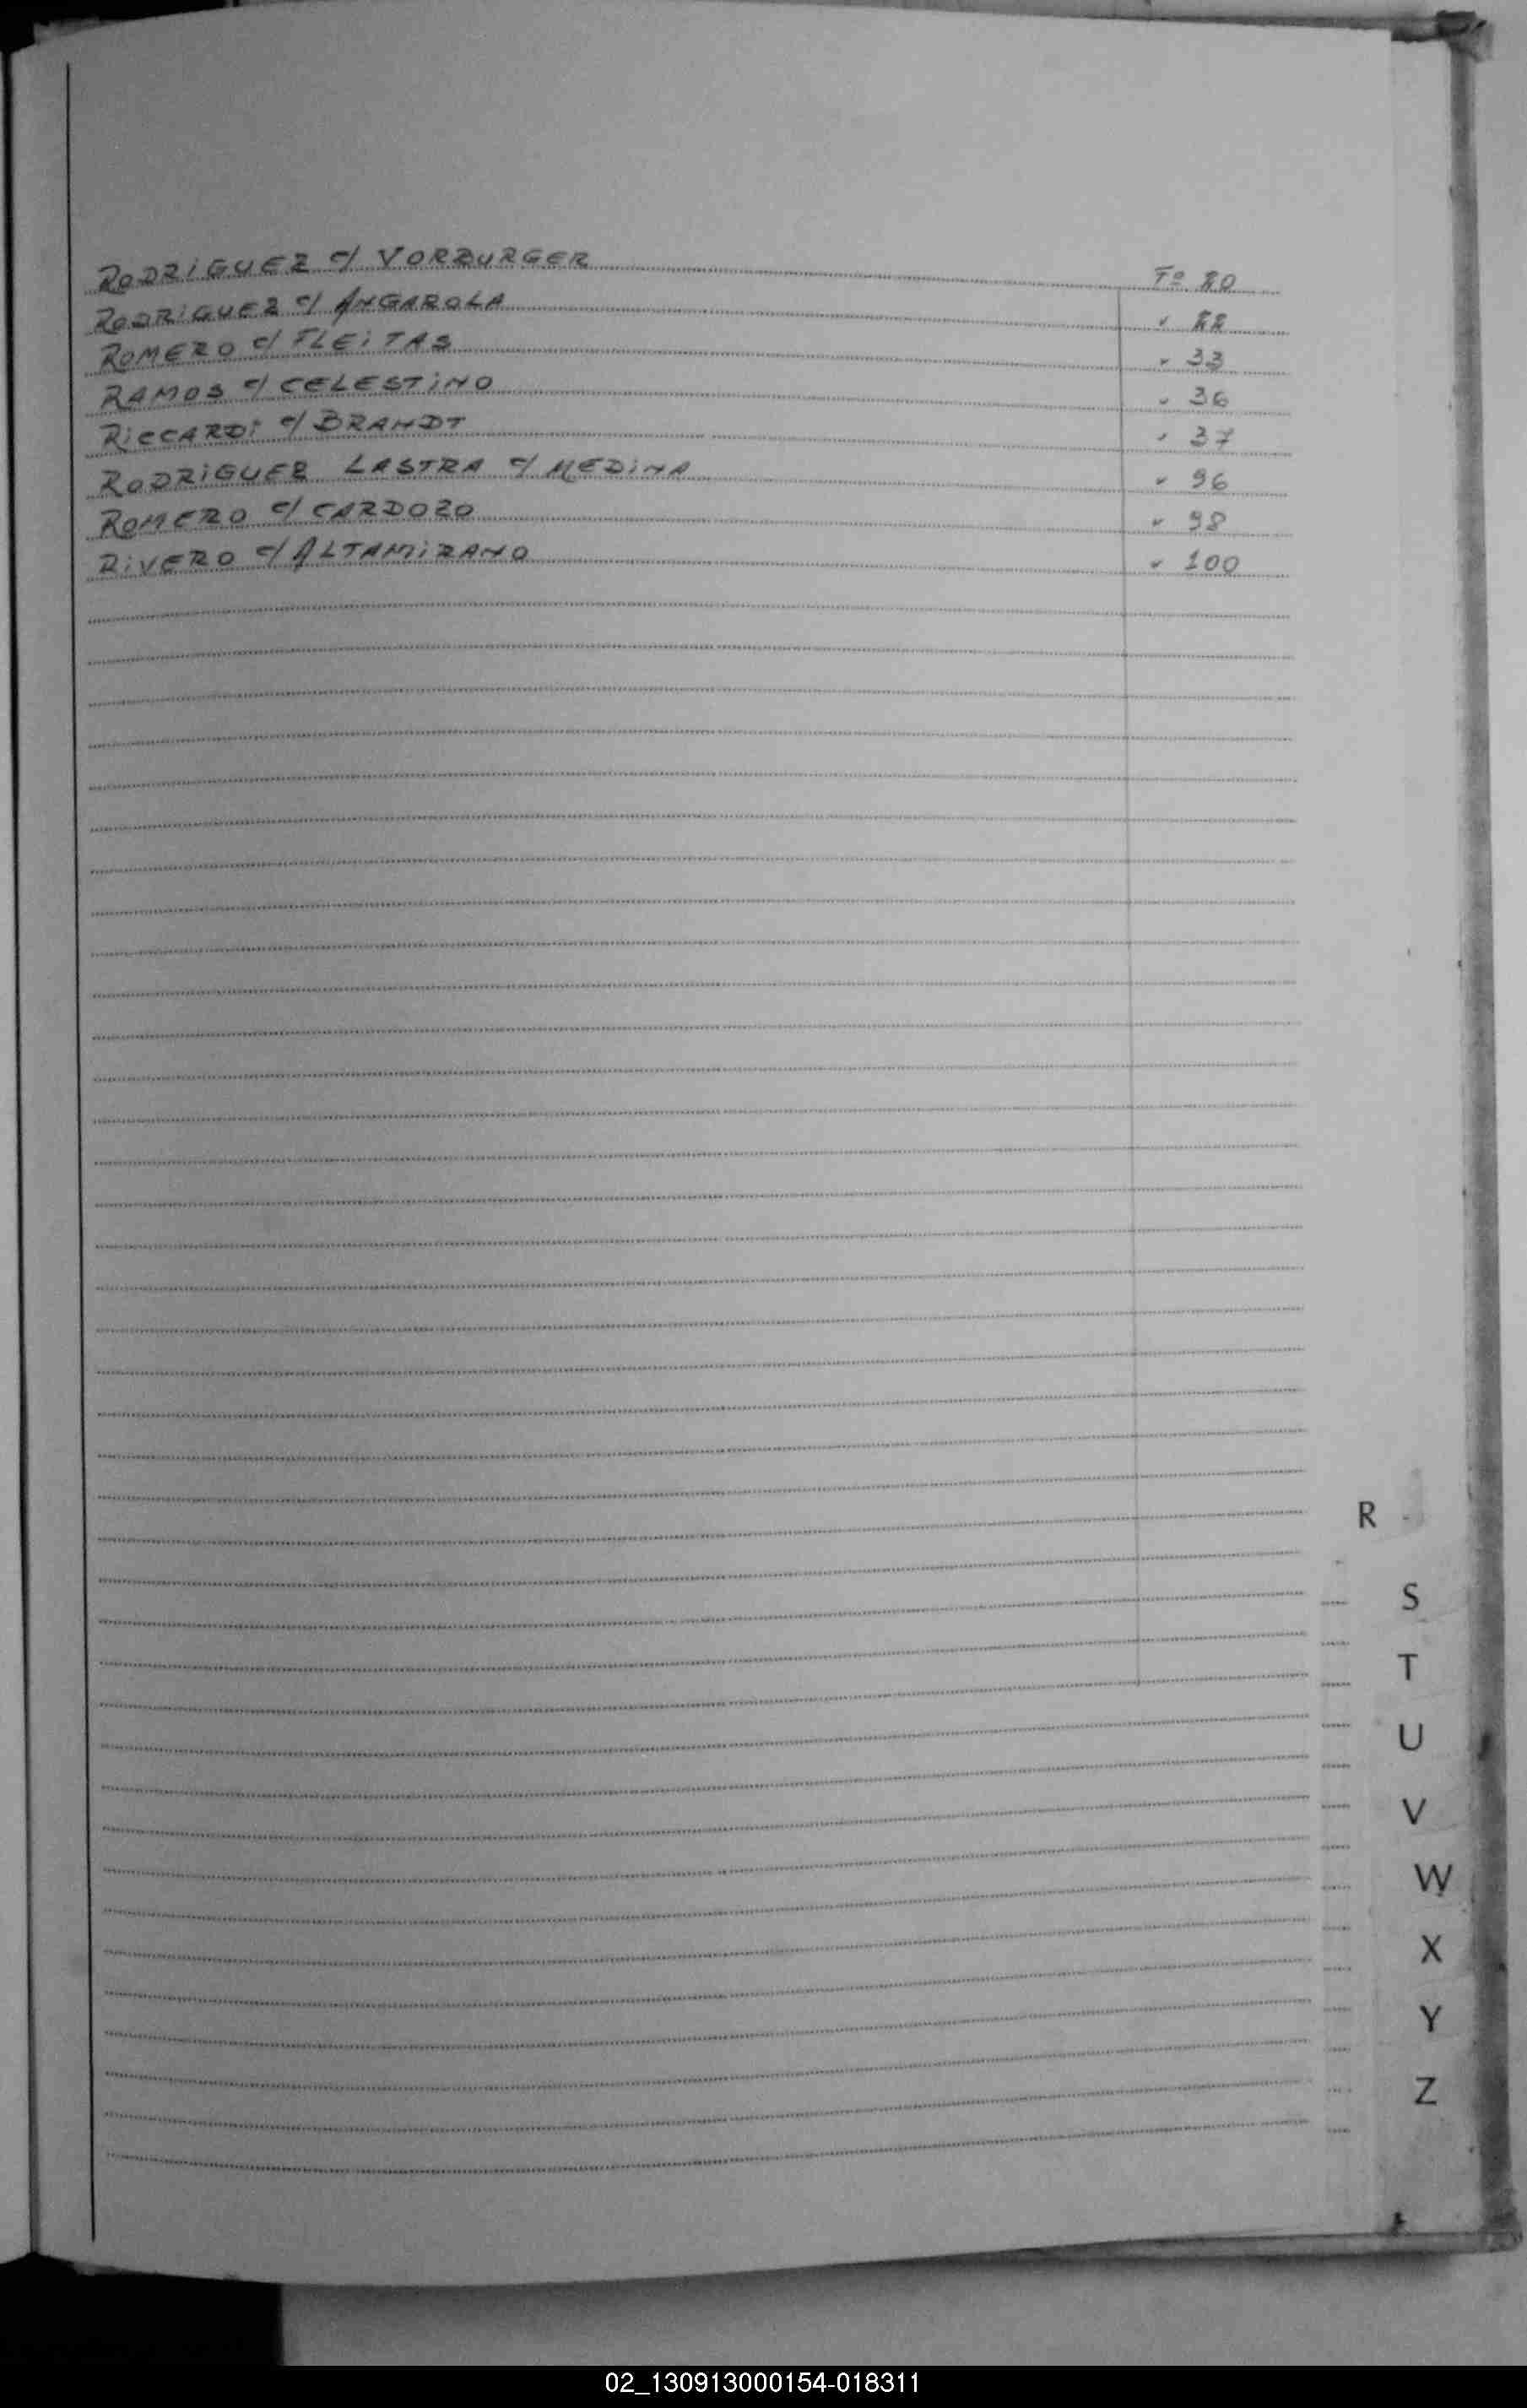 RODRIGUEZ c/ VORBURGER Fº 20
RODRIGUEZ c/ ANGAROLA " 22
ROMERO c/ FLEITAS " 33
RAMOS c/ CELESTINO " 36
RICCARDI c/ BRANDT " 37
RODRIGUEZ LASTRA c/ MEDINA " 96
ROMERO c/ CARDOZO " 98
RIVERO c/ ALTAMIRANO " 100
R
S
T
U
V
W
X
Y
Z
02_130913000154-018311